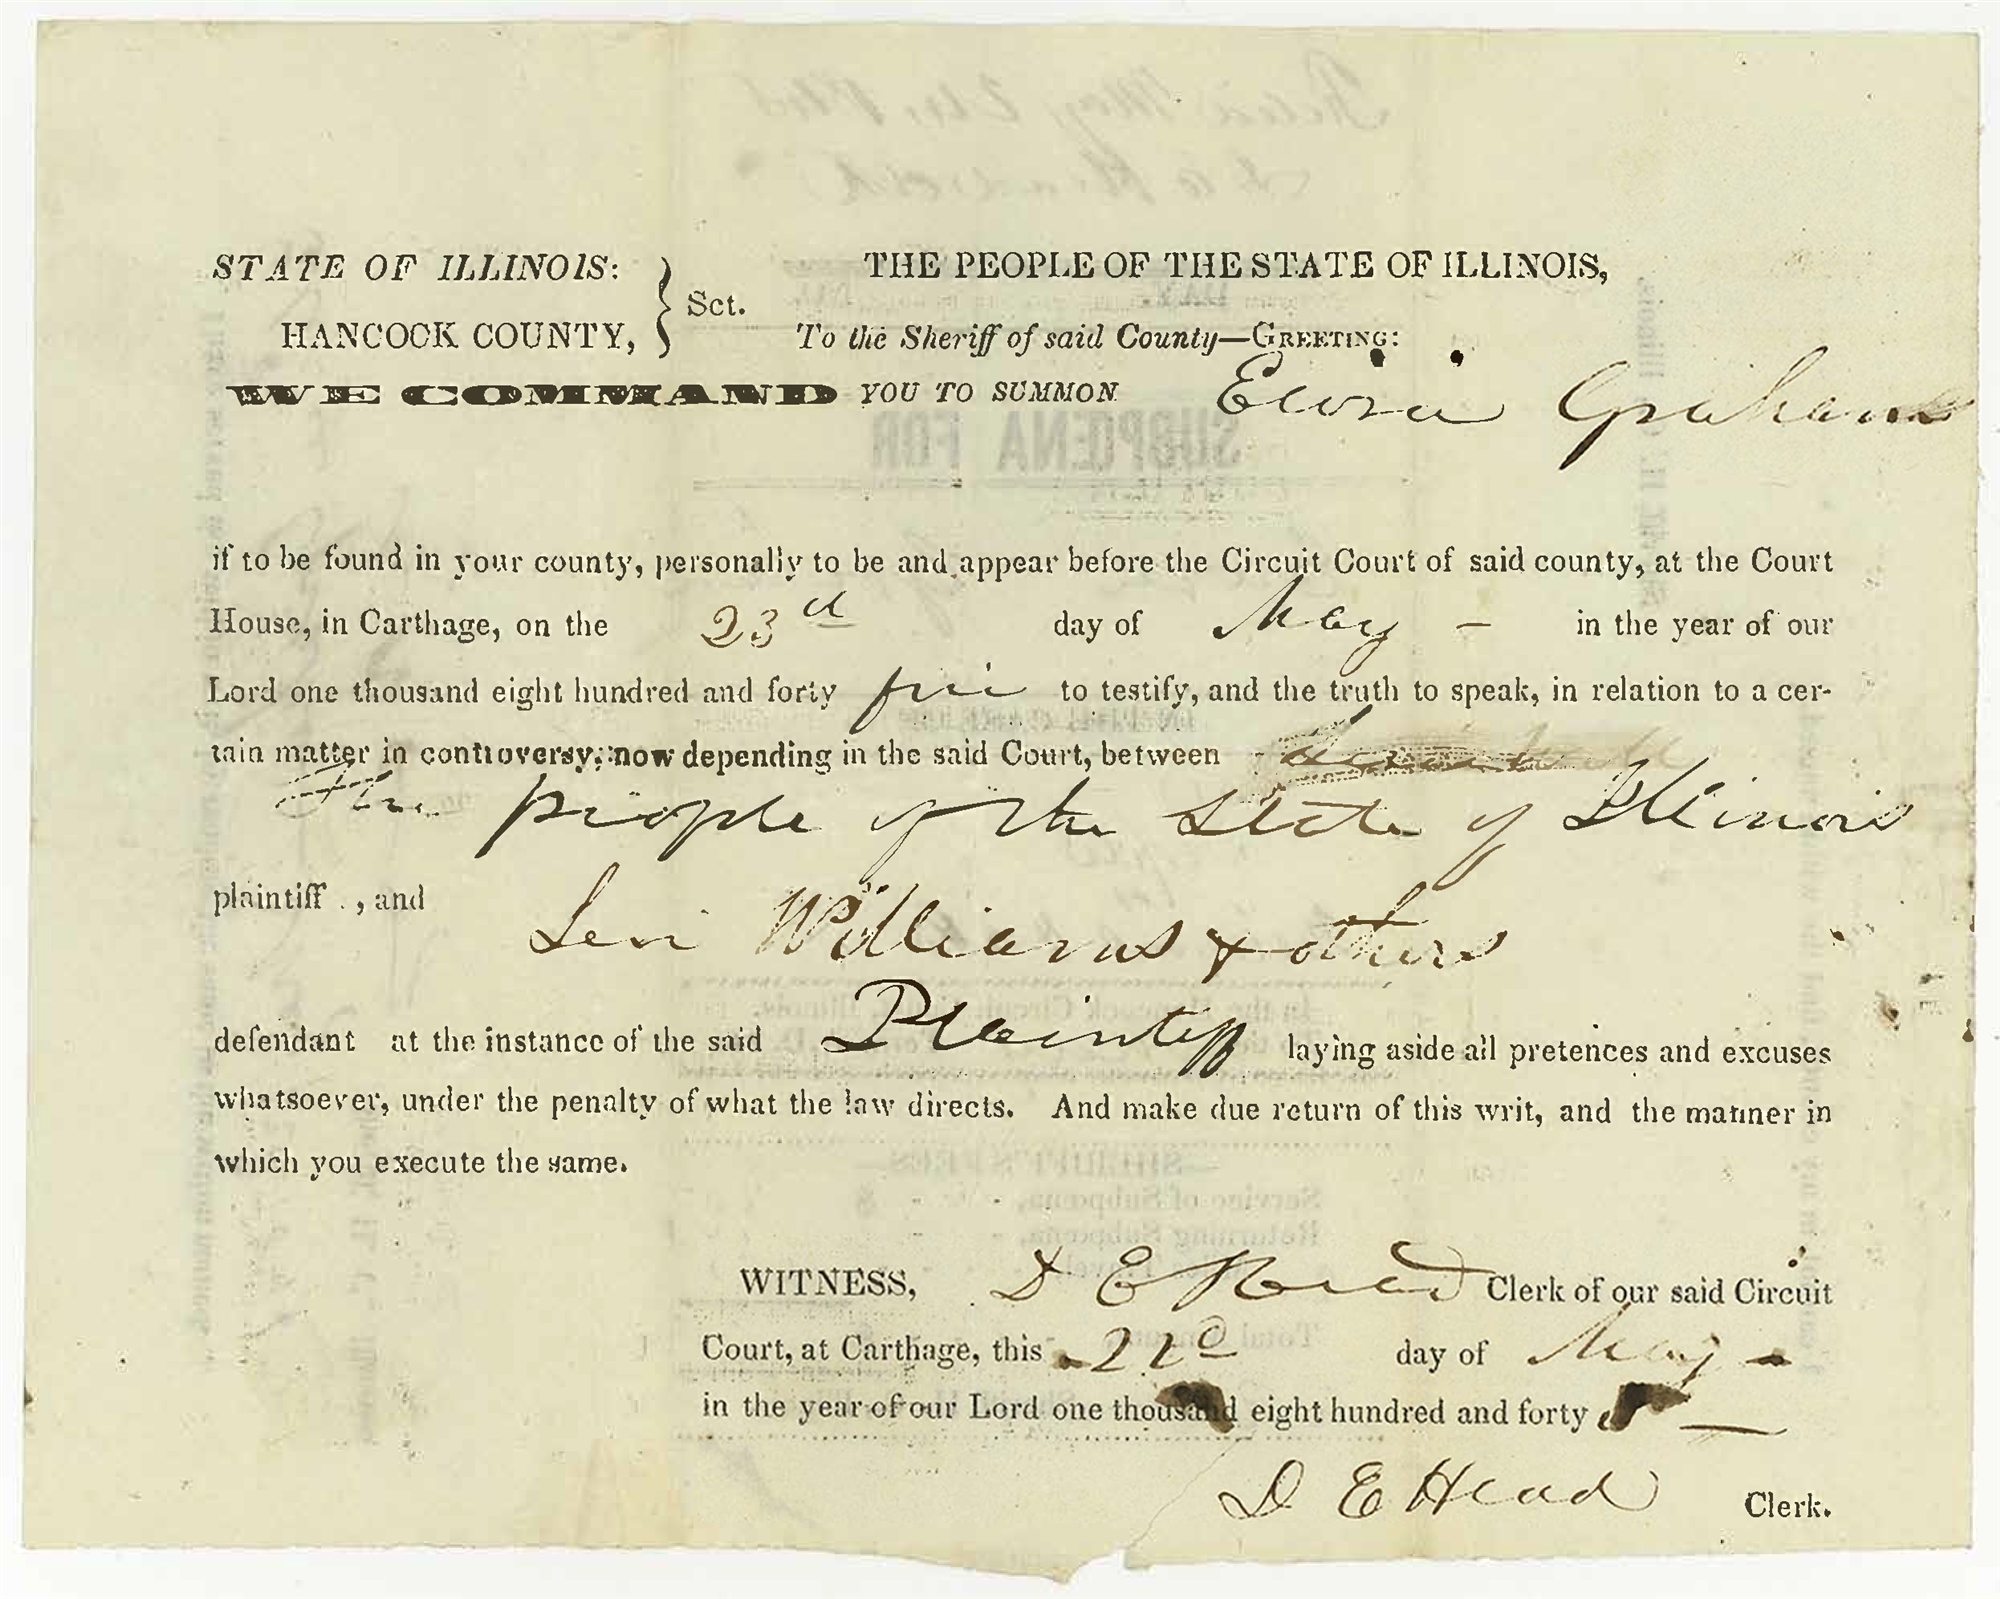 STATE OF ILLINOIS:
HANCOCK COUNTY,
Sct.
THE PEOPLE OF THE STATE OF ILLINOIS,
To the Sheriff of said County—GREETING:
WE COMMAND YOU TO SUMMON Eliza Graham
if to be found in your county, personally to be and appear before the Circuit Court of said county, at the Court
House, in Carthage, on the 23d day of May - in the year of our
Lord one thousand eight hundred and forty five to testify, and the truth to speak, in relation to a cer-
tain matter in controversy, now depending in the said Court, between
The people of the State of Illinois
plaintiff , and Levi Williams & others
defendant at the instance of the said Plaintiff laying aside all pretences and excuses
whatsoever, under the penalty of what the law directs. And make due return of this writ, and the manner in
which you execute the same.
WITNESS, D E Head Clerk of our said Circuit
Court, at Carthage, this 22d day of May -
in the year of our Lord one thousand eight hundred and forty 5 —
D E Head Clerk.
SUBPŒNA FOR
SHERIFF'S FEES
Service of Subpœna,
Returning Subpœna,